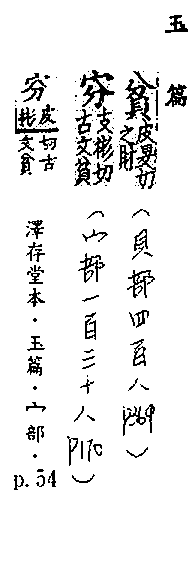 玉篇
貧皮旻切之財（貝部四百八 p369）
穷支彬切古文貧（宀部一百三十八 p170）
穷皮切古彬文貧
澤存堂本．玉篇．宀部．p.54